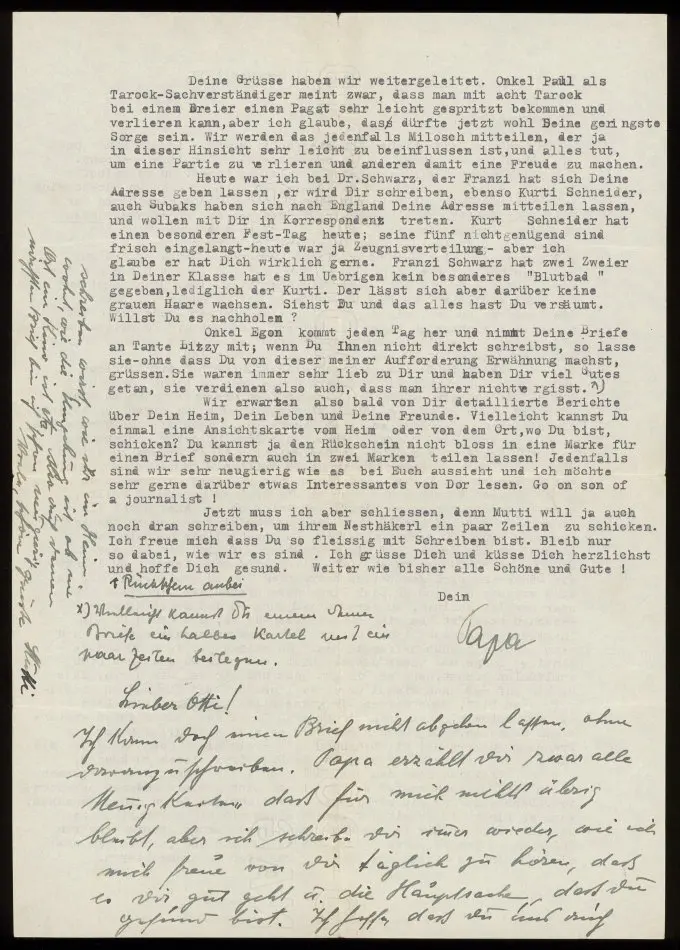 Deine Grüsse haben wir weitergeleitet. Onkel Paul als
Tarock-Sachverständiger meint zwar, dass man mit acht Tarock
bei einem Dreier einen Pagat sehr leicht gespritzt bekommen und
verlieren kann,aber ich glaube, dass dürfte jetzt wohl Deine geringste
Sorge sein. Wir werden das jedenfalls Milosch mitteilen, der ja
in dieser Hinsicht sehr leicht zu beeinflussen ist,und alles tut,
um eine Partie zu verlieren und anderen damit eine Freude zu machen.
Heute war ich bei Dr.Schwarz, der Franzi hat sich Deine
Adresse geben lassen ,er wird Dir schreiben, ebenso Kurti Schneider,
auch Subaks haben sich nach England Deine Adresse mitteilen lassen,
und wollen mit Dir in Korrespondenz treten. Kurt Schneider hat
einen besonderen Fest-Tag heute; seine fünf nichtgenügend sind
frisch eingelangt-heute war ja Zeugnisverteilung- aber ich
glaube er hat Dich wirklich gerne. Franzi Schwarz hat zwei Zweier
in Deiner Klasse hat es im Uebrigen kein besonderes "Blutbad "
gegeben,lediglich der Kurti. Der lässt sich aber darüber keine
grauen Haare wachsen. Siehst Du und das alles hast Du versäumt.
Willst Du es nachholen ?
Onkel Egon kommt jeden Tag her und nimmt Deine Briefe
an Tante Lizzy mit; wenn Du Ihnen nicht direkt schreibst, so lasse
sie-ohne dass Du von dieser meiner Aufforderung Erwähnung machst,
grüssen.Sie waren immer sehr lieb zu Dir und haben Dir viel Gutes
getan, sie verdienen also auch, dass man ihrer nicht vergisst. x)
Wir erwarten also bald von Dir detaillierte Berichte
über Dein Heim, Dein Leben und Deine Freunde. Vielleicht kannst Du
einmal eine Ansichtskarte vom Heim oder von dem Ort,wo Du bist,
schicken? Du kannst ja den Rückschein nicht bloss in eine Marke für
einen Brief sondern auch in zwei Marken teilen lassen! Jedenfalls
sind wir sehr neugierig wie es bei Euch aussieht und ich möchte
sehr gerne darüber etwas Interessantes von Dor lesen. Go on son of
a journalist !
Jetzt muss ich aber schliessen, denn Mutti will ja auch
noch dran schreiben, um ihrem Nesthäkerl ein paar Zeilen zu schicken.
Ich freue mich dass Du so fleissig mit Schreiben bist. Bleib nur
so dabei, wie wir es sind . Ich grüsse Dich und küsse Dich herzlichst
und hoffe Dich gesund. Weiter wie bisher alle Schöne und Gute !
Rückschein anbei
Dein
Papa
x) Vielleicht kannst Du einem Deiner
Briefe ein halbes Kartel mit ein
paar Zeilen beilegen.
Lieber Otti!
Ich kann doch einen Brief nicht abgehen lassen, ohne
daranzuschreiben. Papa erzählt Dir zwar alle
Neuigkeiten daß für mich nichts übrig
bleibt, aber ich schreibe Dir immer wieder, wie ich
mich freue von Dir täglich zu hören, daß
es Dir gut geht u. die Hauptsache, daß Du
gesund bist. Ich hoffe daß Du uns auch
schreiben wirst wie es im Heim
wohl, wie die Umgebung ist ob im
Ort ein Kino ist etc. Also auf Deinen
nächsten Brief bin ich schon neugierig
Mutti